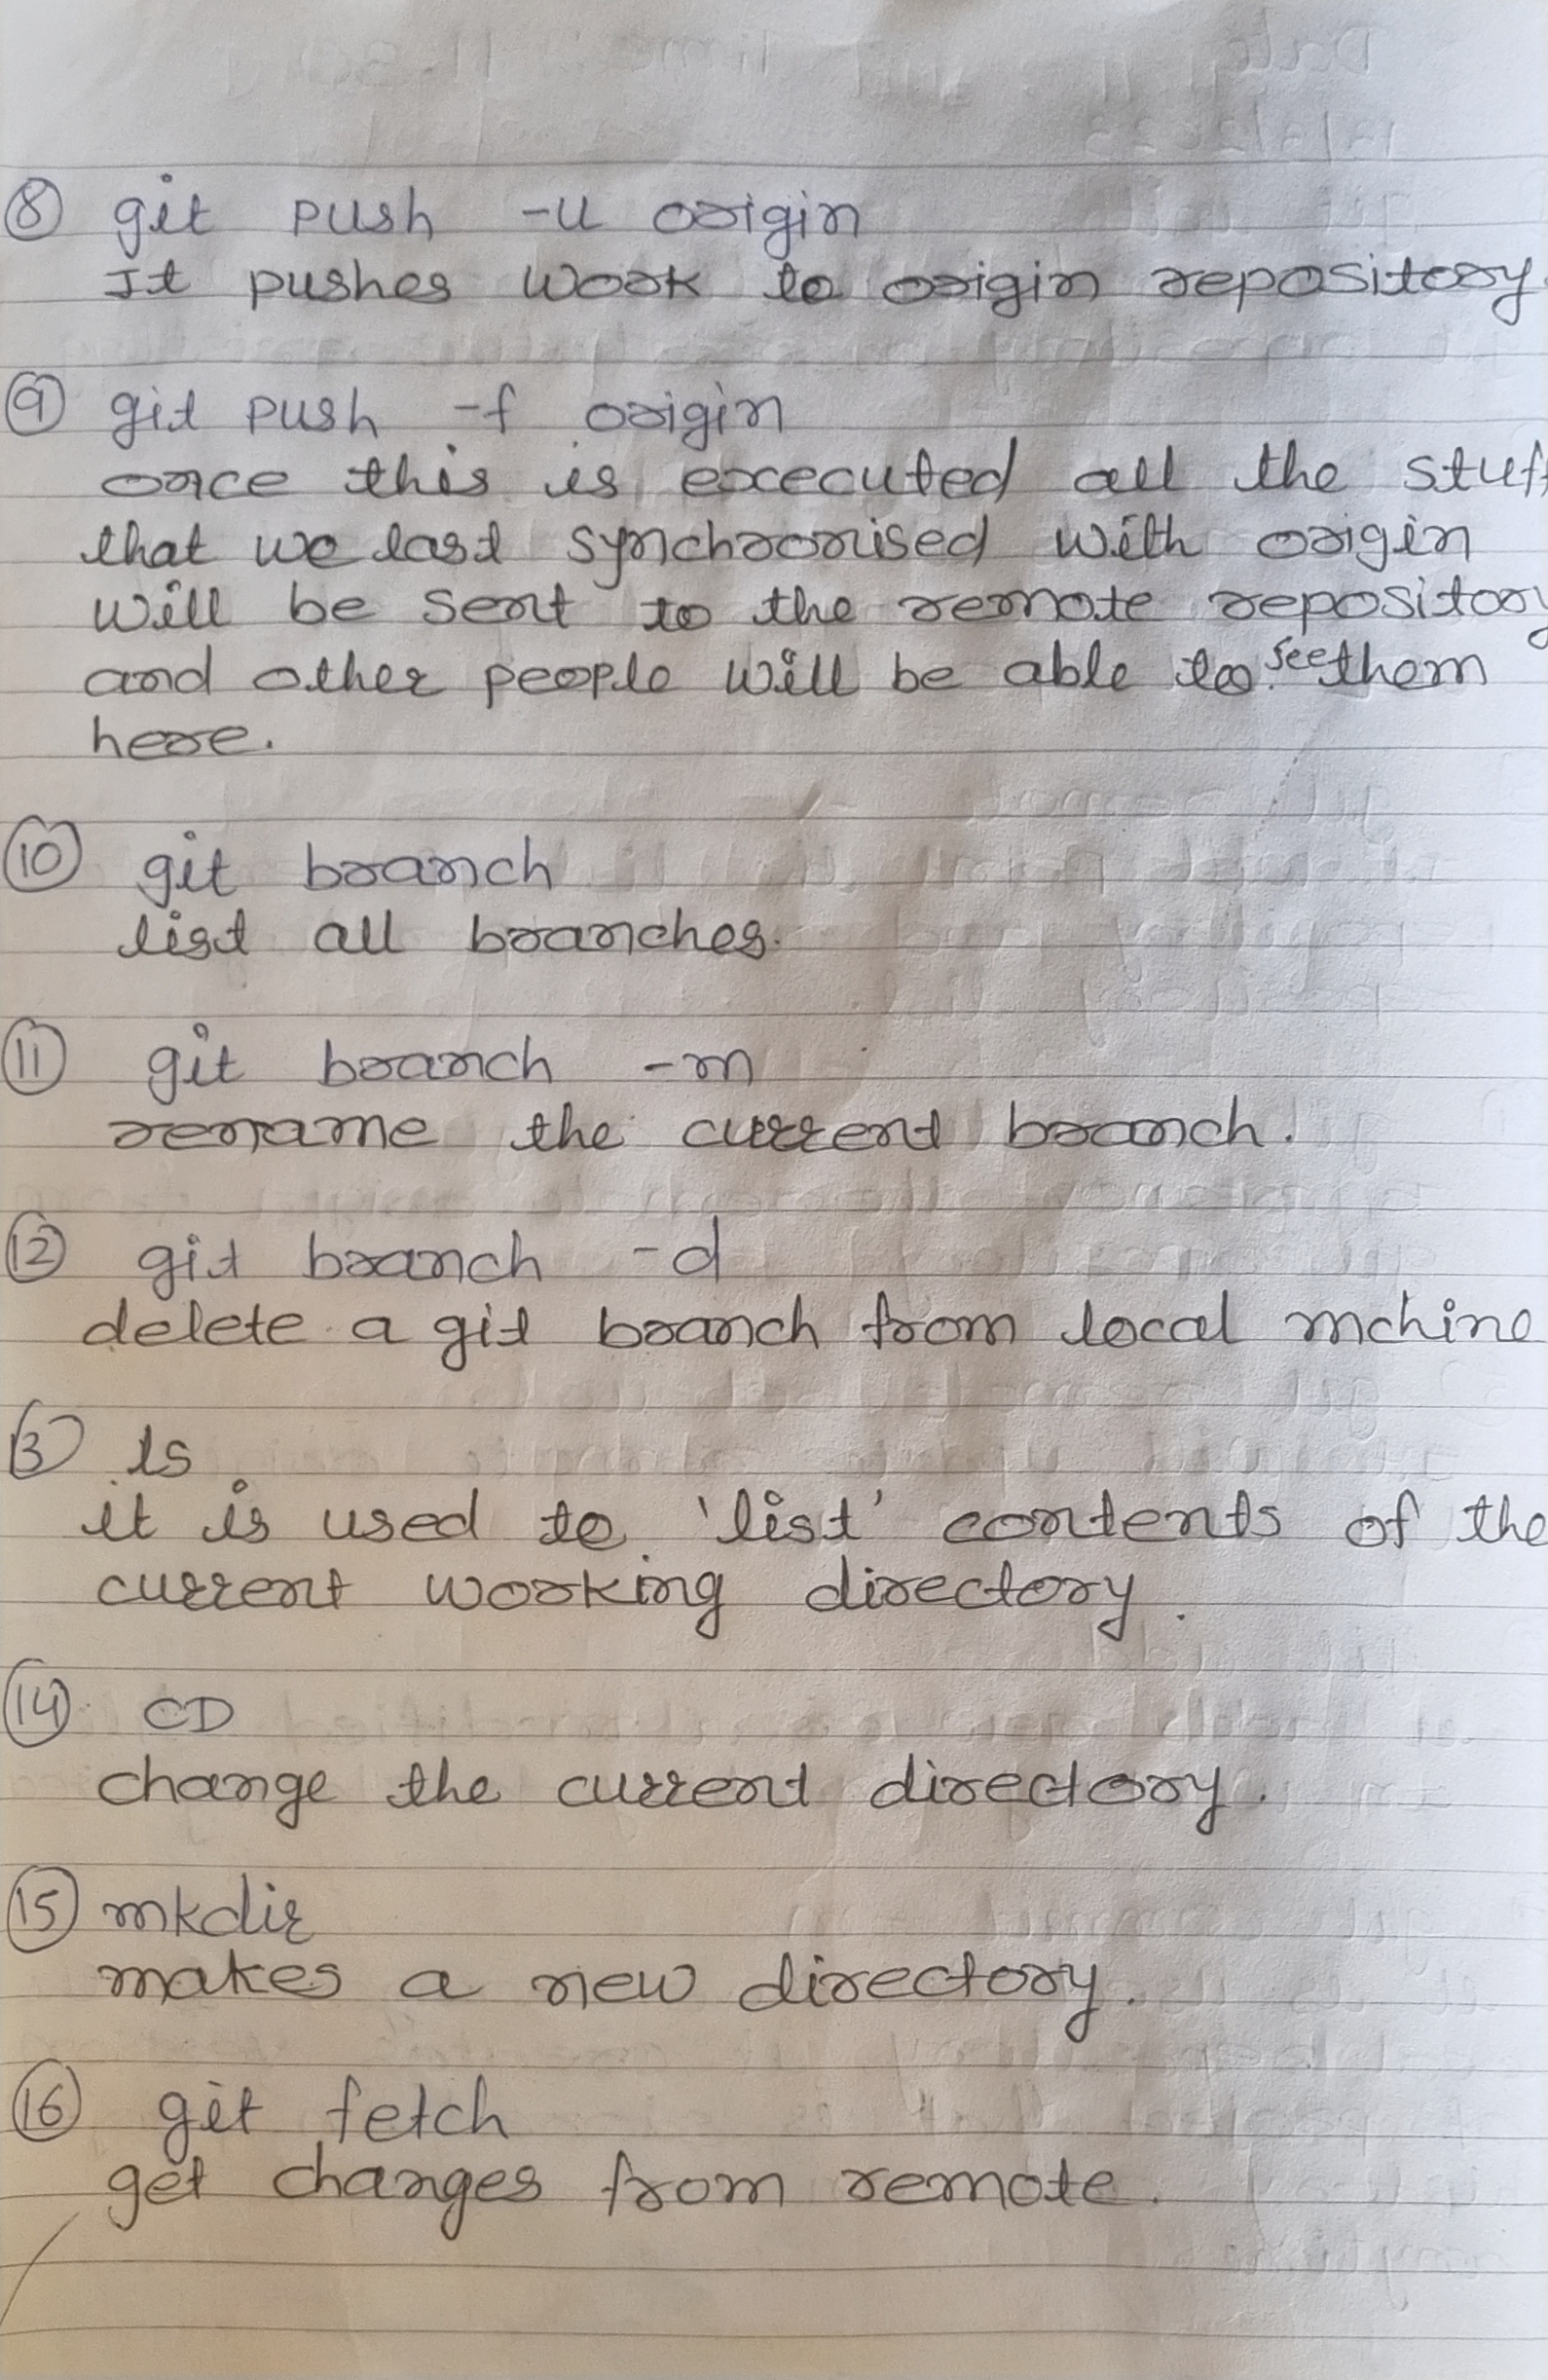 8 git push -u origin
It pushes work to origin repository.
9 git push -f origin
once this is executed all the stuff
that we last synchronised with origin
will be sent to the remote repository
and other people will be able to see them
here.
10 git branch
list all branches.
11 git branch -m
rename the current branch.
12 git branch -d
delete a git branch from local mchine
13 ls
it is used to 'list' contents of the
current working directory.
14 CD
change the current directory.
15 mkdir
makes a new directory.
16 git fetch
get changes from remote.